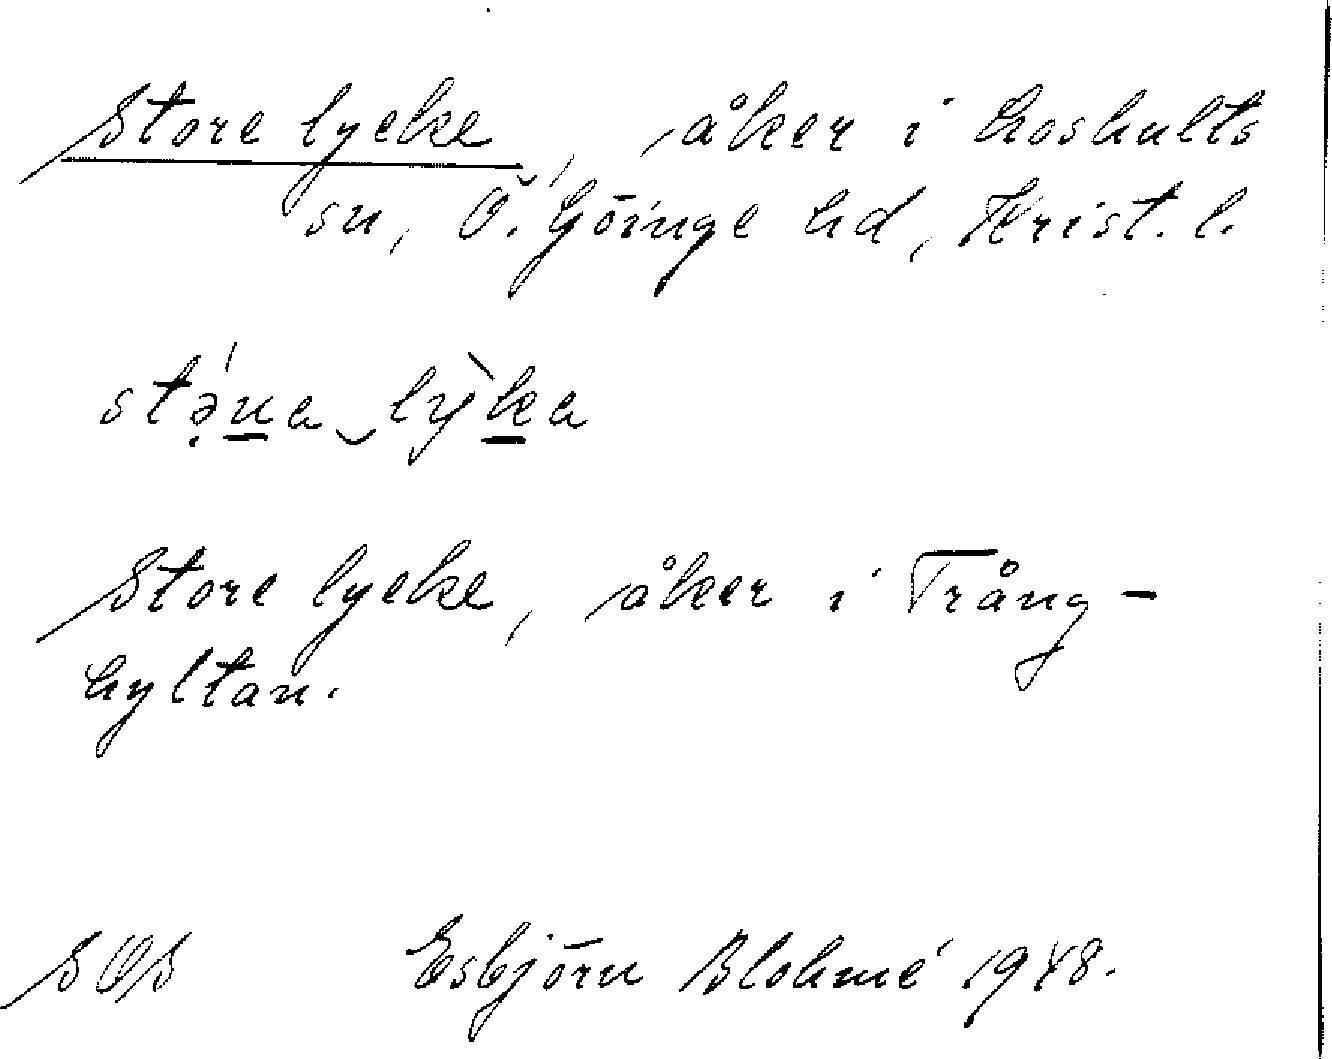 Store lycke, åker i Loshults
sn, Ö. Göinge hd, Krist. l.
Store lycke, åker i Trång-
hyltan.
SOS Esbjörn Blohmé 1948.